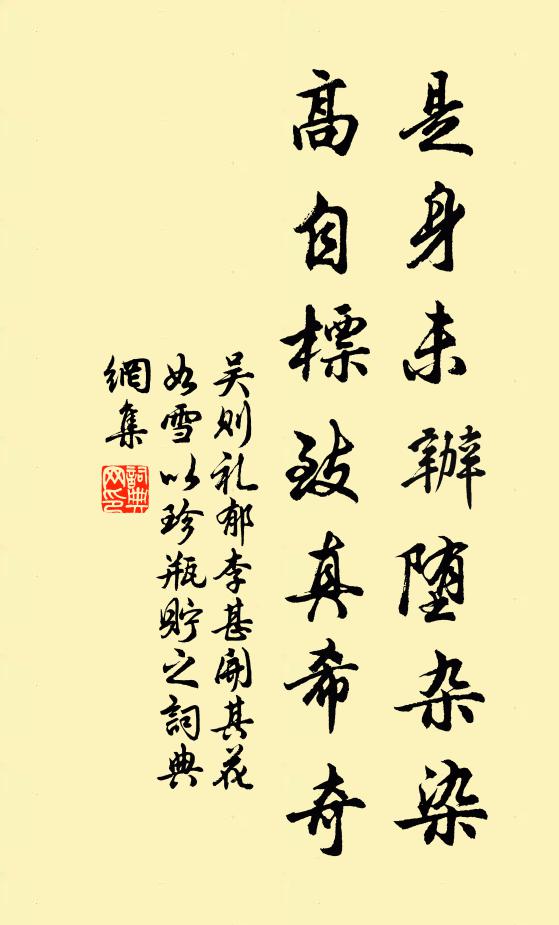 是身未辦堕杂染
高自標致真希奇
吴则礼郁李甚開其花
如雪以珍瓶貯之詞典
網集
詞典
网印